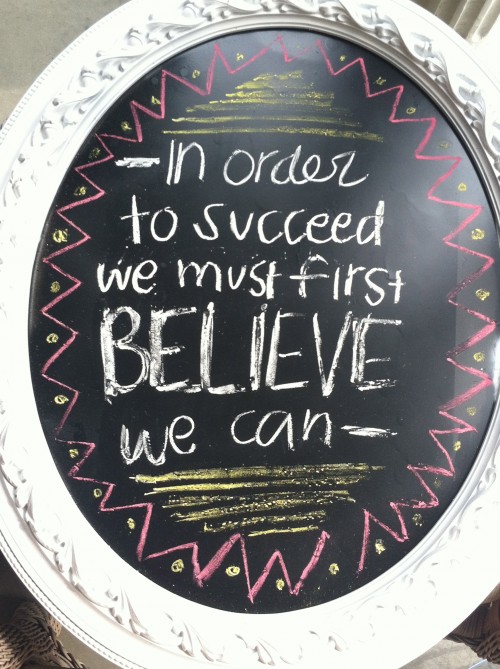 -In order
to succeed
we must first
BELIEVE
we can-